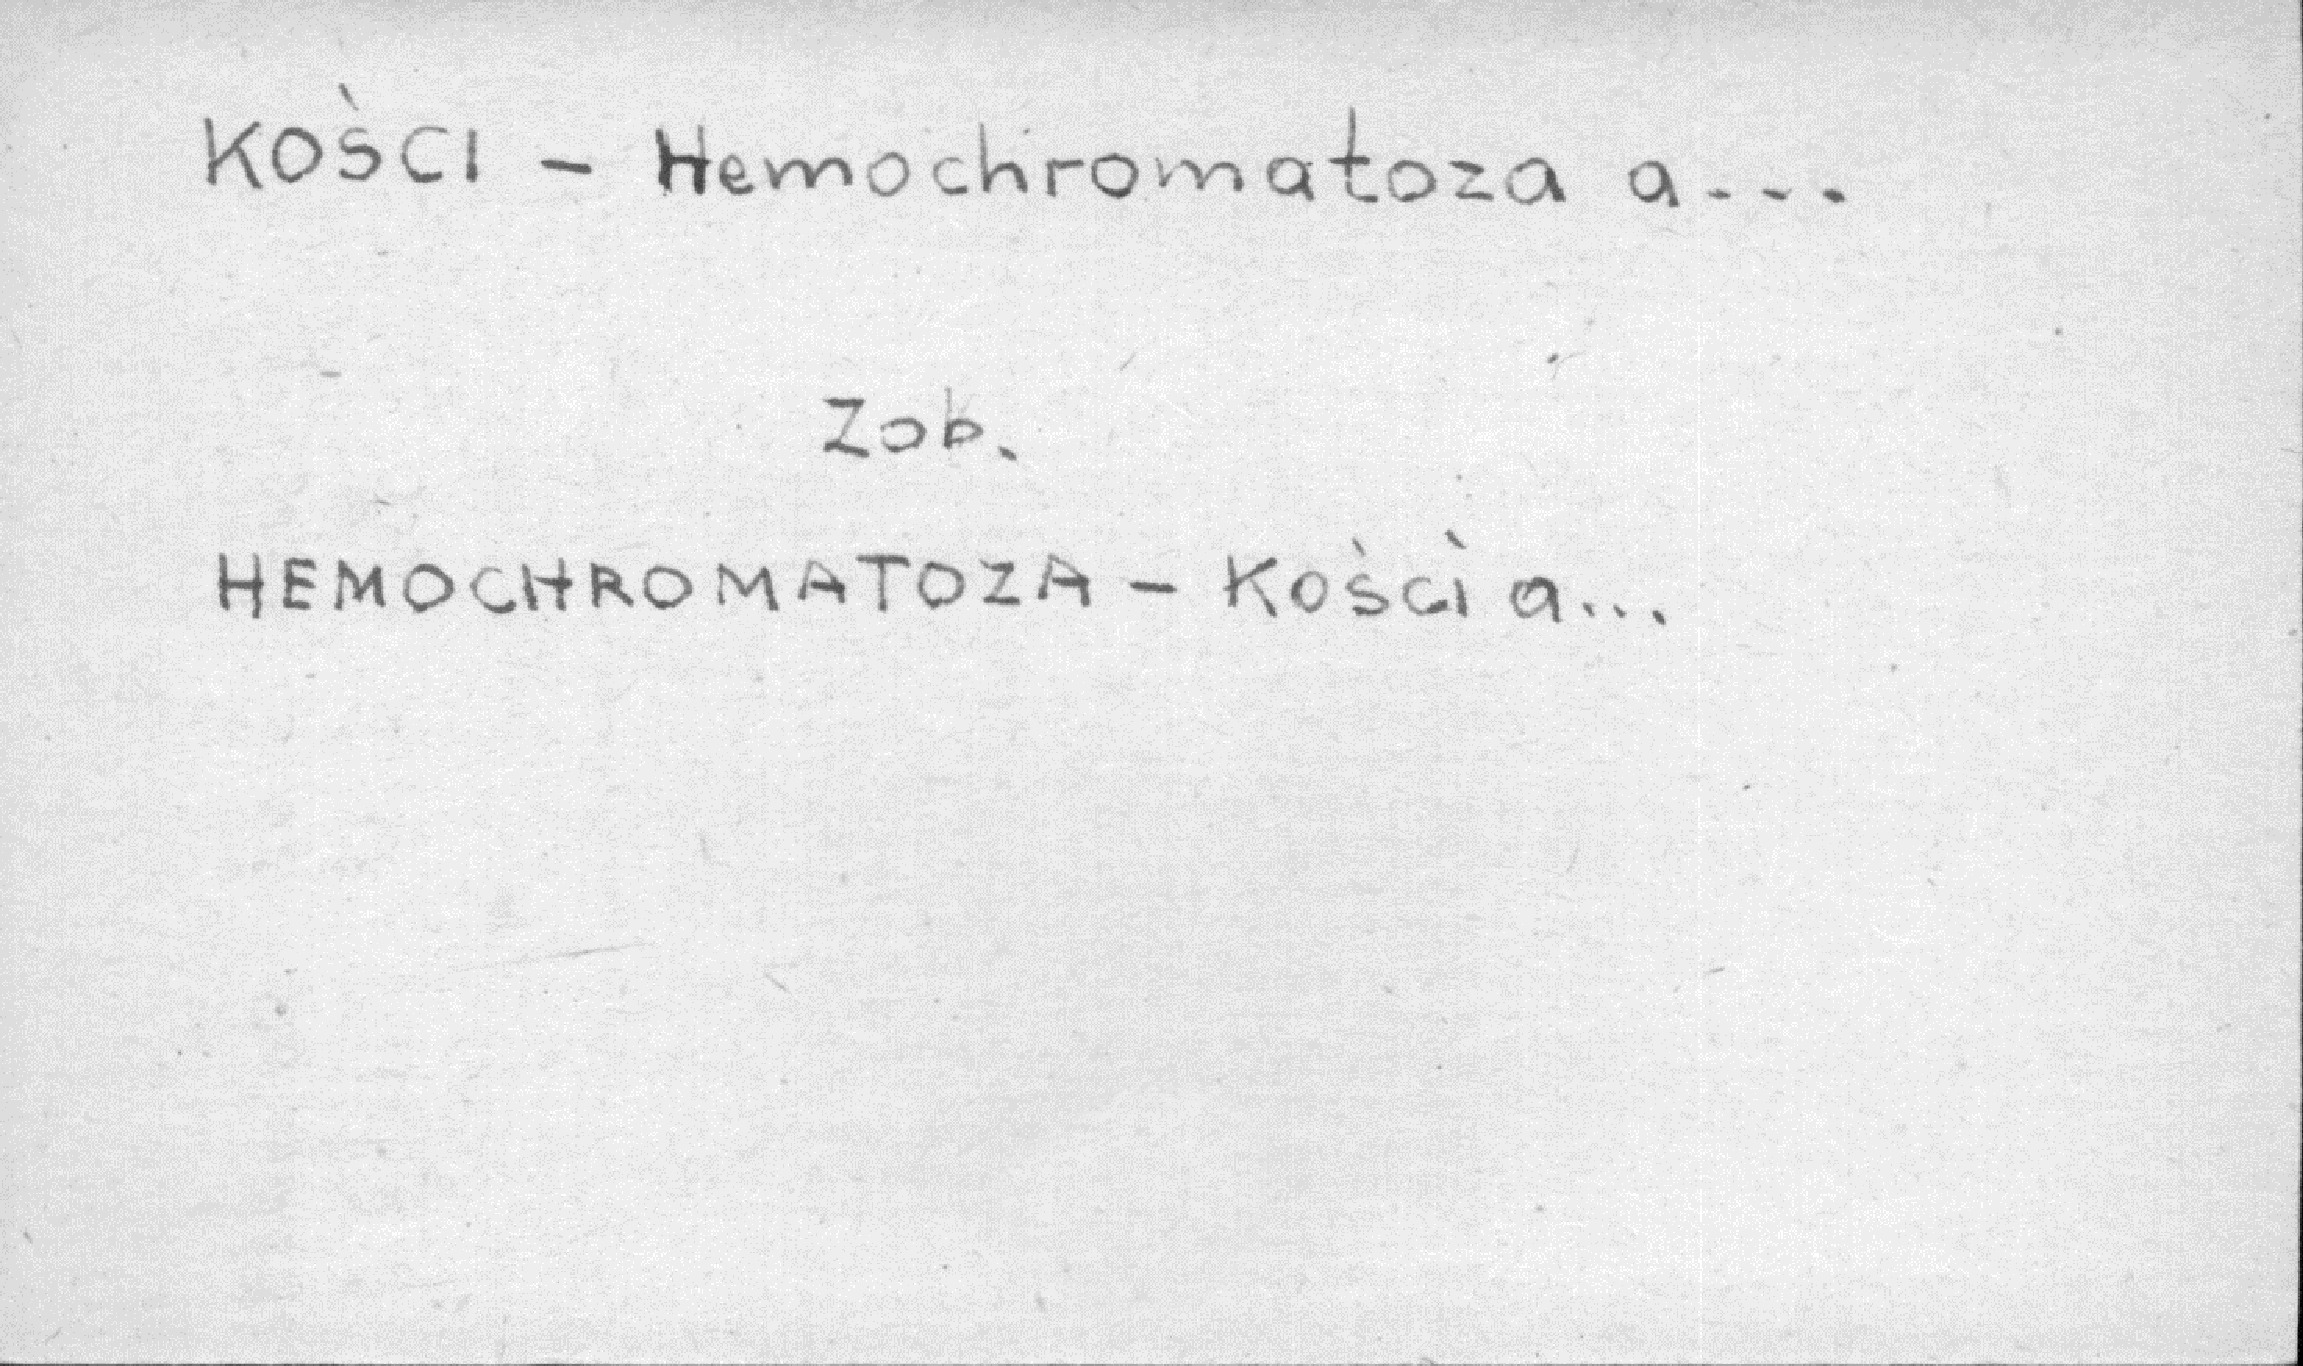 KOŚCI - Hemochromatoza a...
Zob.
HEMOCHROMATOZA - Kości a...